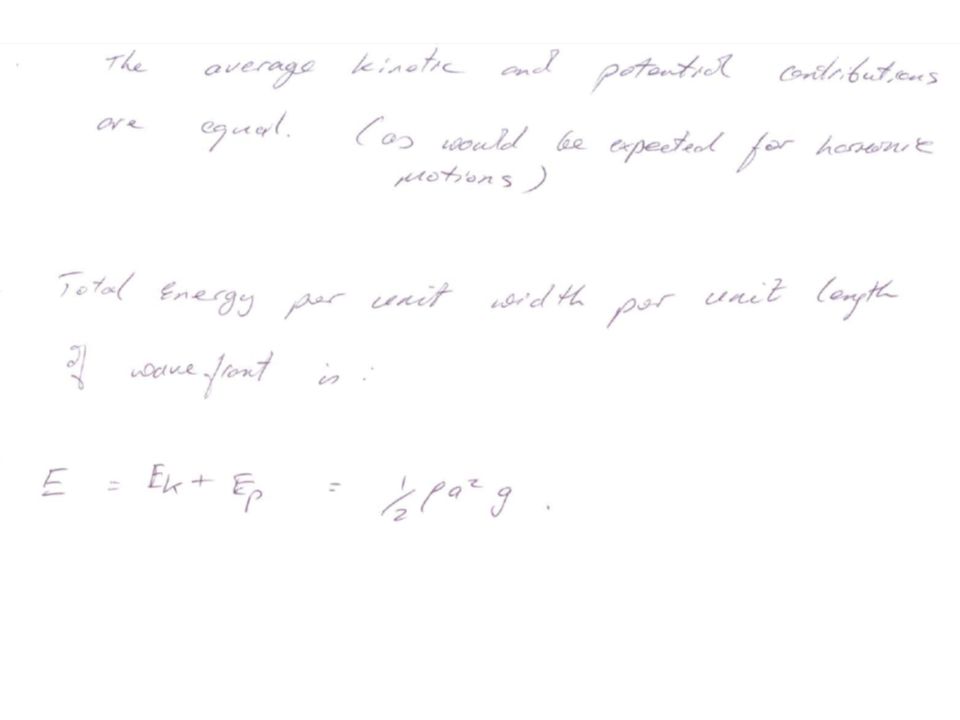 The average kinetic and potential contributions
are equal. (as would be expected for harmonic
motions)
Total Energy per unit width per unit length
of wavefront is:
E = Ek + Ep = 1/2 ρa² g.